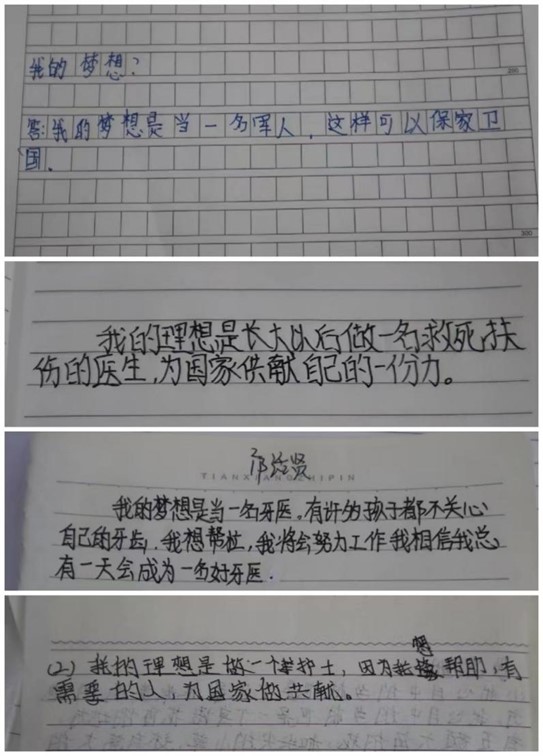 我的梦想？
答：我的梦想是当一名军人，这样可以保家卫
国．
我的理想是长大以后做一名救死扶
伤的医生，为国家供献自己的一份力。
TIANXIANGZHIPIN
我的梦想是当一名牙医。有许多孩子都不关心
自己的牙齿，我想帮他，我将会努力工作我相信我总
有一天会成为一名好牙医．
(2) 我的理想是做一个护士，因为我想帮助有
需要的人为国家做共献。
200
300